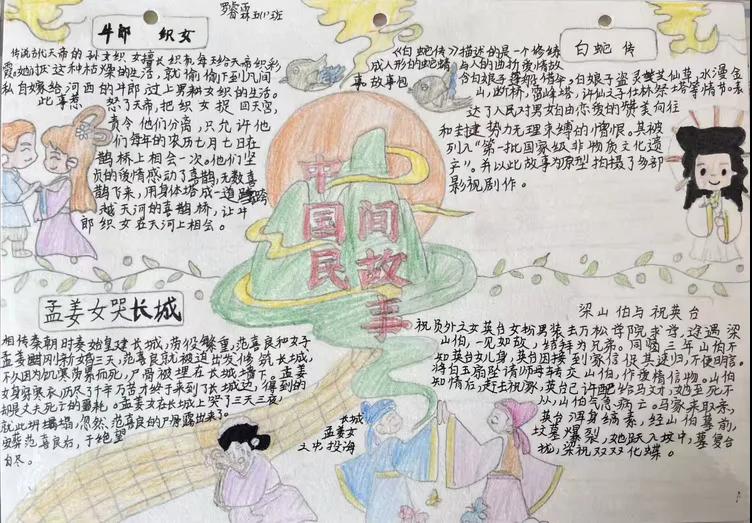 罗睿霖五(1)班
斗郎 织女
传说古代天帝的孙女织女擅长织布,每天给天帝织彩
霞。她讨厌这种枯燥的生活,就偷偷下到凡间
私自嫁给河西的斗郎过上男耕女织的生活。
此事惹 怒了天帝,把织女捉回天宫,
责令他们分离,只允许他
们每年的农历七月七日在
鹊桥上相会一次。他们坚
贞的爱情感动了喜鹊,无数喜
鹊飞来,用身体搭成一道跨
越天河的喜鹊桥,让斗
郎织女在天河上相会。
白蛇传
《白蛇传》描述的是一个修练
成人形的蛇精与人的曲折爱情故
事 故事包
含白娘子 借伞,白娘子盗灵芝仙草,水漫金
山,断桥,雷峰塔,许仙之子仕林祭塔等情节。表
达了人民对男女自由恋爱的赞美向往
和封建势力无理束缚的憎恨。其被
列入“第一批国家级非物质文化遗
产”。并以此故事为原型拍摄了多部
影视剧作。
中国民间故事
孟姜女哭长城
相传秦朝时秦始皇建长城,劳役繁重,范喜良和女子
孟姜女刚新婚三天,范喜良就被迫出发修筑长城,
不久因为饥寒劳累而死,尸骨被埋在长城墙下。孟姜
女身穿寒衣,历尽了千辛万苦才终于来到了长城边,得到的
却是丈夫死亡的噩耗。孟姜女在长城上哭了三天三夜,
就此坍塌,忽然,范喜良的尸骨露出来了。
安葬范喜良后,于绝望 
自尽。
长城
孟姜女
之中,投海
梁山伯与祝英台
祝员外之女英台女扮男装去万松书院求学,途遇梁
山伯,一见如故,结拜为兄弟。同窗三年山伯不
知英台女儿身,英台因接到家信促其速归,不便明言,
将白玉扇坠请师母转交山伯,作爱情信物。山伯
知情后,赶去祝家,英台已许配给马文才,她至死不
从,山伯气急病亡。马家来取亲,
英台浑身缟素,经山伯墓前,
坟墓爆裂,她跃入坟中,墓复合
拢,梁祝双双化蝶。